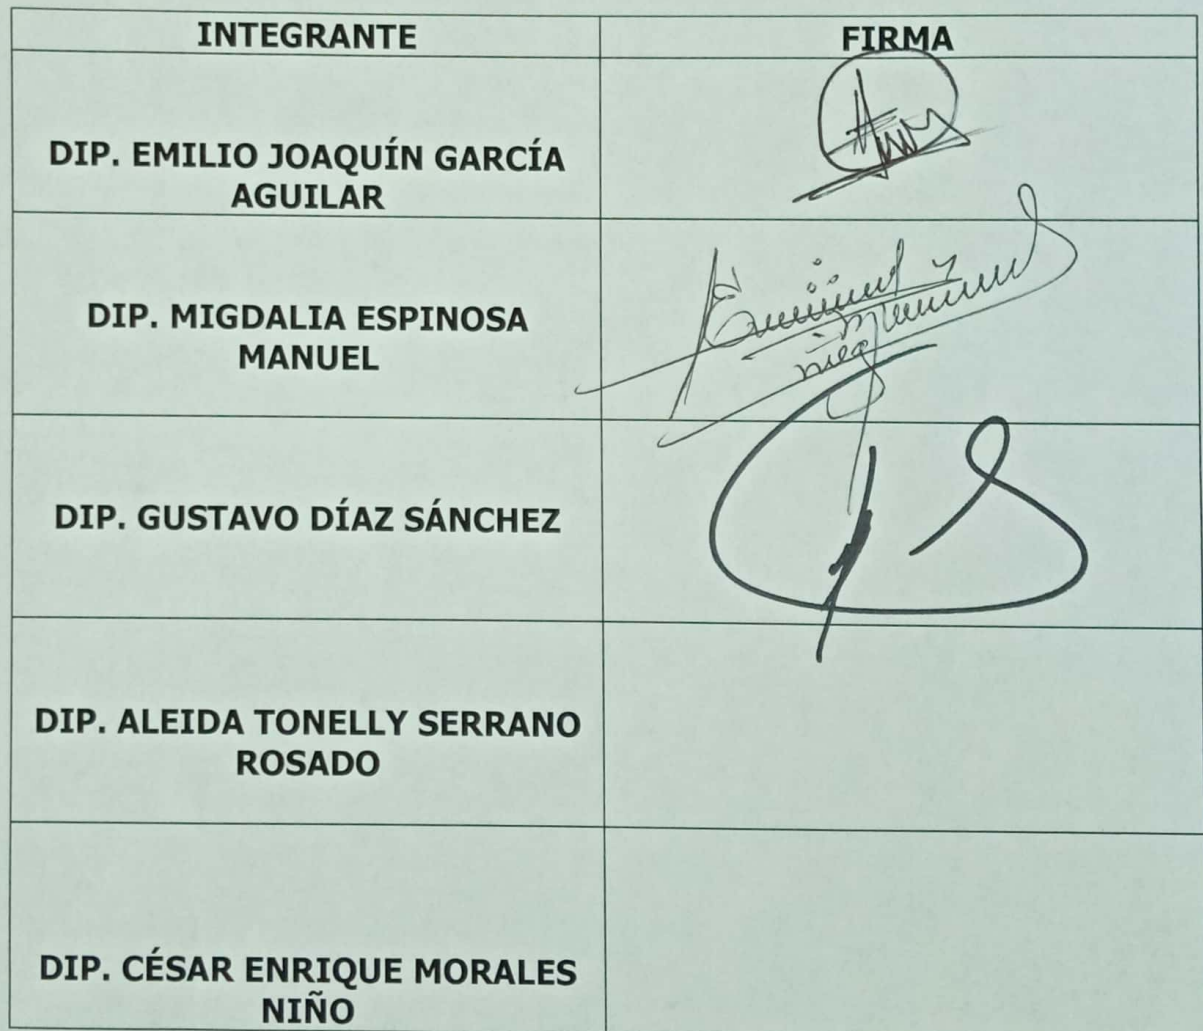 INTEGRANTE
FIRMA
DIP. EMILIO JOAQUÍN GARCÍA
AGUILAR
DIP. MIGDALIA ESPINOSA
MANUEL
DIP. GUSTAVO DÍAZ SÁNCHEZ
DIP. ALEIDA TONELLY SERRANO
ROSADO
DIP. CÉSAR ENRIQUE MORALES
NIÑO